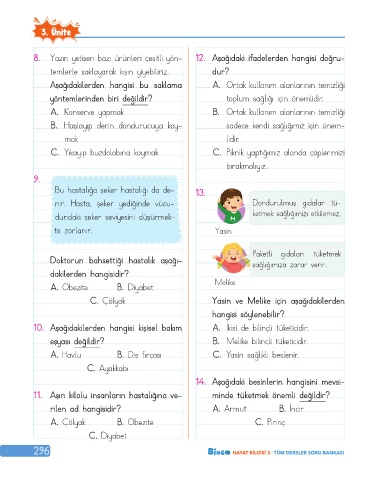 3. Ünite
8. Yazın yetişen bazı ürünleri çeşitli yön-
temlerle saklayarak kışın yiyebiliriz.
Aşağıdakilerden hangisi bu saklama
yöntemlerinden biri değildir?
A. Konserve yapmak
B. Haşlayıp derin dondurucuya koy-
mak
C. Yıkayıp buzdolabına koymak
9.
Bu hastalığa şeker hastalığı da de-
nir. Hasta, şeker yediğinde vücu-
dundaki şeker seviyesini düşürmek-
te zorlanır.
Doktorun bahsettiği hastalık aşağı-
dakilerden hangisidir?
A. Obezite B. Diyabet
C. Çölyak
10. Aşağıdakilerden hangisi kişisel bakım
eşyası değildir?
A. Havlu B. Diş fırçası
C. Ayakkabı
11. Aşırı kilolu insanların hastalığına ve-
rilen ad hangisidir?
A. Çölyak B. Obezite
C. Diyabet
12. Aşağıdaki ifadelerden hangisi doğru-
dur?
A. Ortak kullanım alanlarının temizliği
toplum sağlığı için önemlidir.
B. Ortak kullanım alanlarının temizliği
sadece kendi sağlığımız için önem-
lidir.
C. Piknik yaptığımız alanda çöplerimizi
bırakmalıyız.
13.
Dondurulmuş gıdalar tü-
ketmek sağlığımızı etkilemez.
Yasin
Paketli gıdaları tüketmek
sağlığımıza zarar verir.
Melike
Yasin ve Melike için aşağıdakilerden
hangisi söylenebilir?
A. İkisi de bilinçli tüketicidir.
B. Melike bilinçli tüketicidir.
C. Yasin sağlıklı beslenir.
14. Aşağıdaki besinlerin hangisini mevsi-
minde tüketmek önemli değildir?
A. Armut B. İncir
C. Pirinç
296
BİNGO HAYAT BİLGİSİ 3 - TÜM DERSLER SORU BANKASI